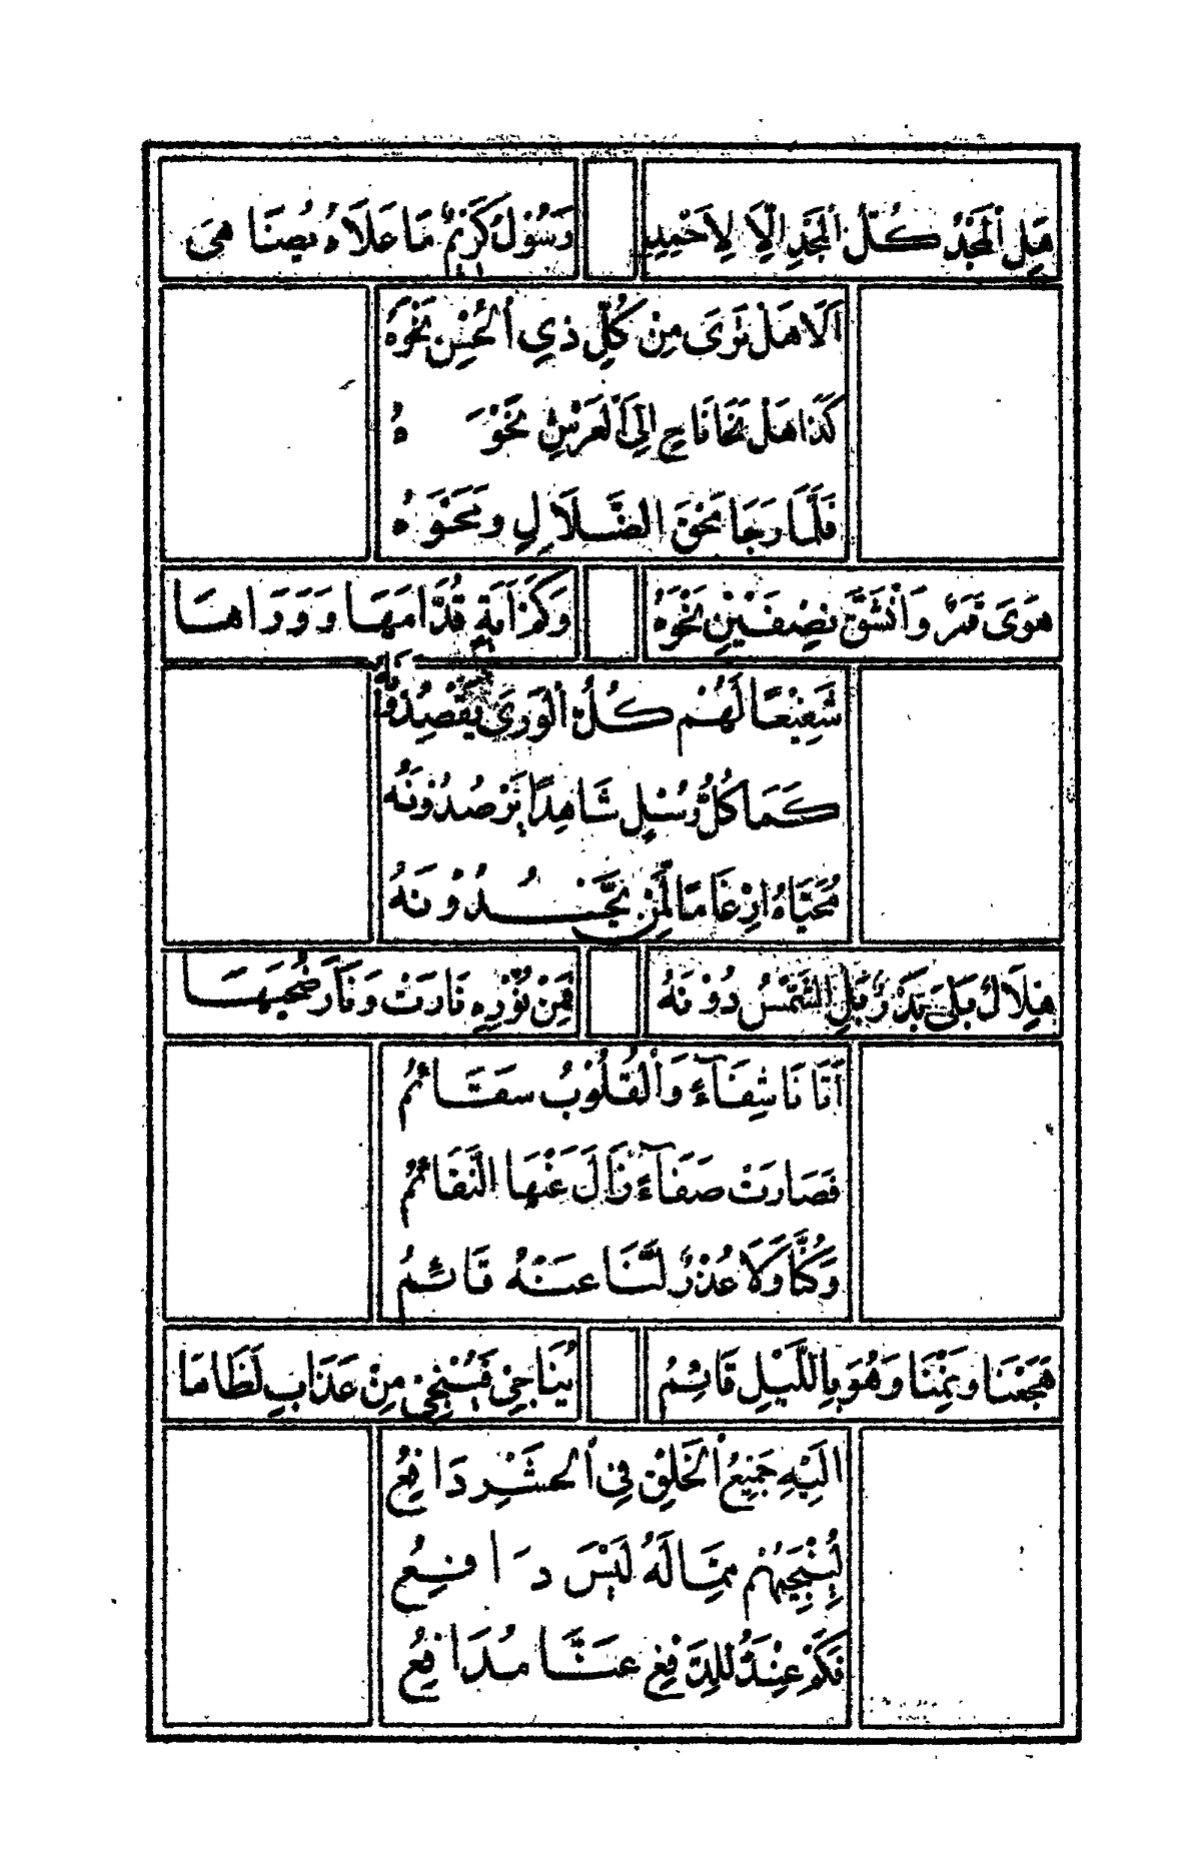 هَلِ ٱلْمَجْدُ كُلُّ ٱلْمَجْدِ إِلَّا لِأَحْمَدِ رَسُولٌ كَرِيمٌ مَا عَلَاءٌ يُضَاهِى
أَلَا هَلْ تَرَى مِنْ كُلِّ ذِي ٱلْحُسْنِ نَحْوَهُ
كَذَا هَلْ نَحَا نَاحٍ إِلَى ٱلْعَرْشِ نَحْوَهُ
فَلَمَّا رَجَا مَحْقَ الضَّلَالِ وَمَحْوَهُ
هَوَى قَمَرٌ وَٱنْشَقَّ نِصْفَيْنِ نَحْوَهُ وَكَمْ آيَةٍ قُدَّامَهَا وَوَرَاهَا
شَفِيعًا لَهُمْ كُلُّ ٱلْوَرَى يَقْصِدُونَهُ
كَمَا كُلُّ رُسْلٍ شَاهِدًا يَرْصُدُونَهُ
مُحَيَّاهُ إِرْغَامًا لِمَنْ يَجْحَدُونَهُ
هِلَالٌ بَلَى بَدْرٌ بَلِ الشَّمْسُ دُونَهُ فَمِنْ نُورِهِ نَارَتْ وَنَارَ ضُحَيهَا
أَتَانَا شِفَاءً وَٱلْقُلُوبُ سَقَائِمُ
فَصَارَتْ صَفَاءً زَالَ عَنْهَا النَّقَائِمُ
وَكُنَّا وَلَا عُذْرٌ لَنَا عَنْهُ قَائِمُ
هَجَعْنَا وَنِمْنَا وَهُوَ بِاللَّيْلِ قَائِمُ يُنَاجِي فَيُنْجِي مِنْ عَذَابِ لَظَاهَا
إِلَيْهِ جَمِيعُ ٱلْخَلْقِ فِي ٱلْحَشْرِ دَافِعُ
لِيُنْجِيَهُمْ مِمَّا لَهُ لَيْسَ دَافِعُ
فَكَمْ عِنْدَهُ لِلدَّفْعِ عَنَّا مُدَافِعُ